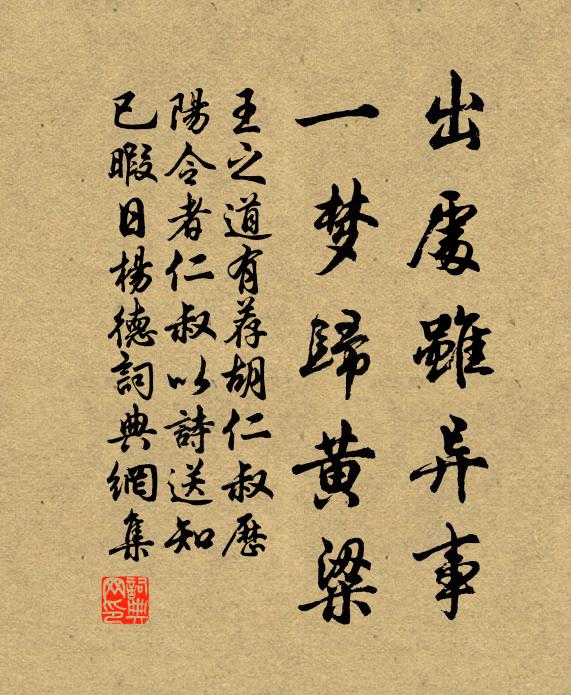 出處雖异事
一梦歸黄梁
王之道有荐胡仁叔歷
陽令者仁叔以詩送知
已暇日楊德詞典網集
詞典网印